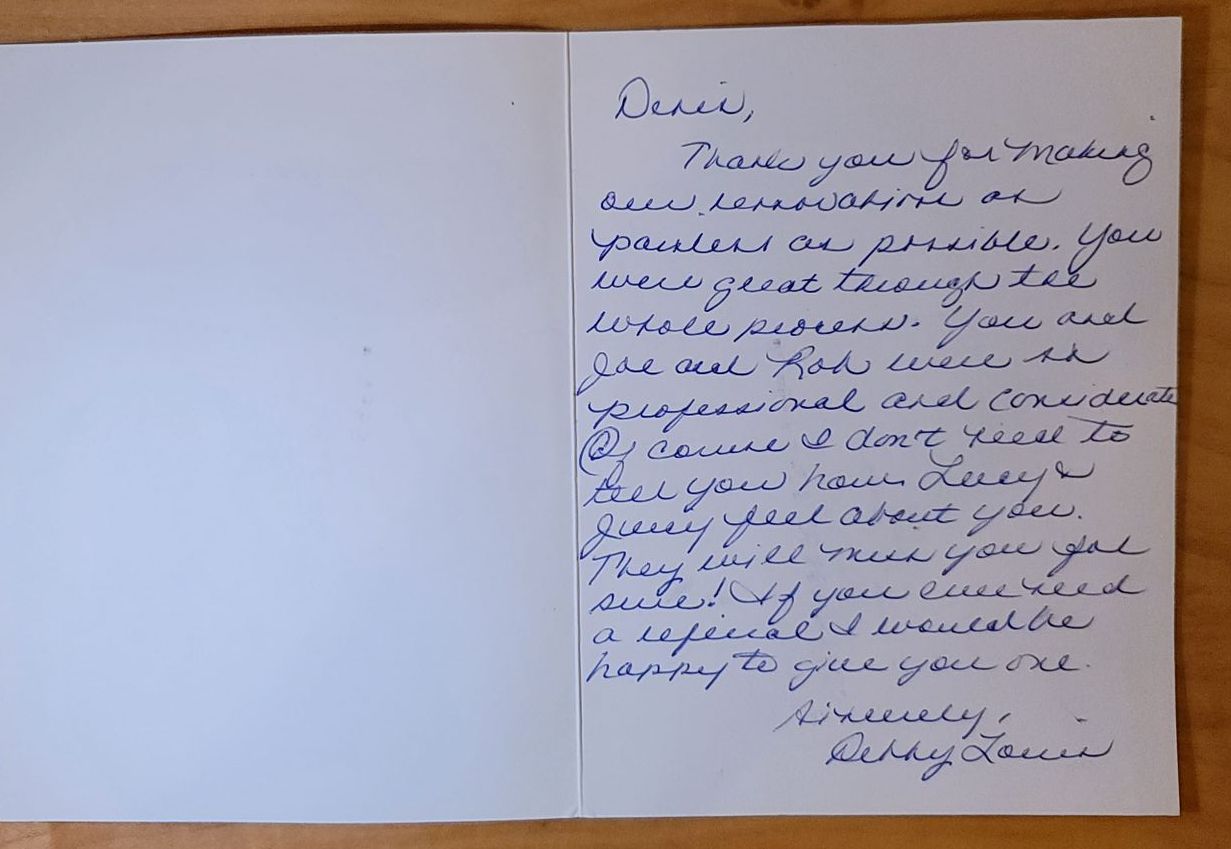 Denis,
Thank you for making
our renovation as
painless as possible. You
were great through the
whole process. You and
Joe and Rob were so
professional and considerate
Of course I don't need to
tell you how Lucy &
Juicy feel about you.
They will miss you for
sure! If you ever need
a referral I would be
happy to give you one.
Sincerely,
Debby